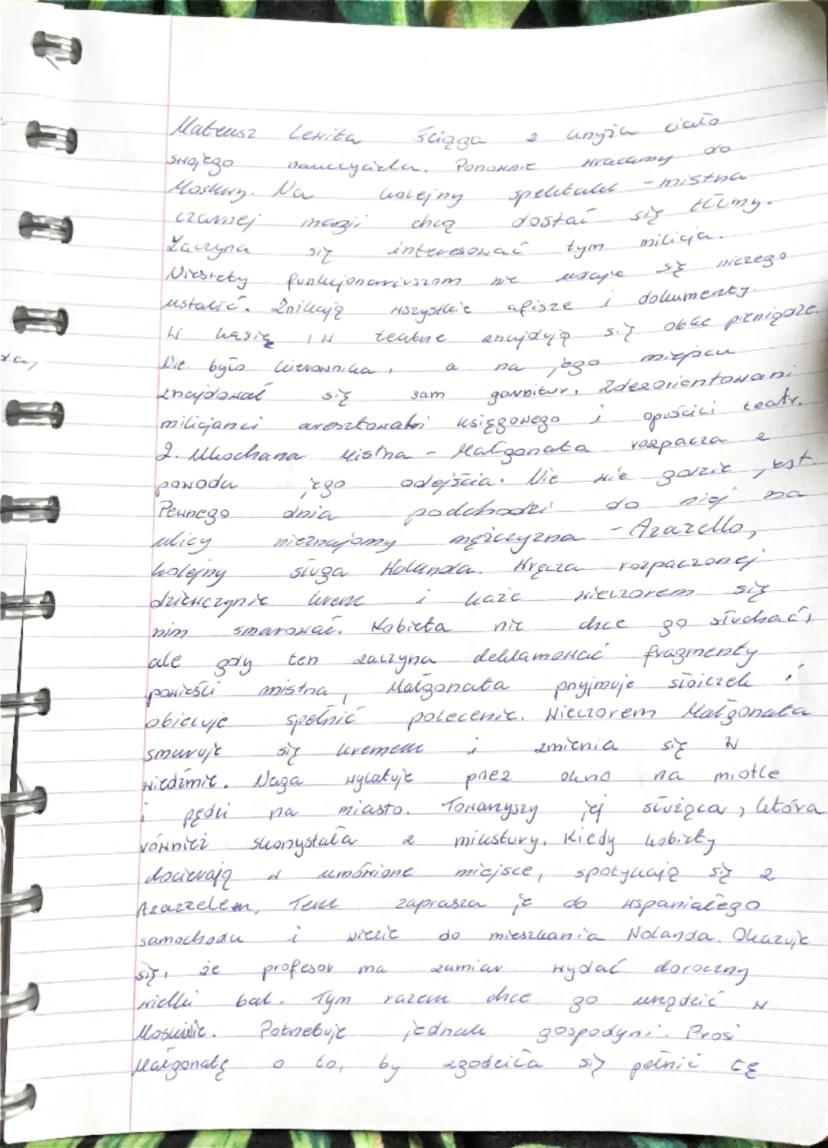 Mateusz Lewita ściąga z krzyża ciało
swojego nauczyciela. Ponownie wracamy do
Moskwy. Na kolejny spektakl - mistrza
czarnej magii chcą dostać się tłumy.
Zaczyna się interesować tym milicja.
Niestety funkcjonariuszom nie udaje się niczego
ustalić. Znikają wszystkie afisze i dokumenty.
W kasie i w teatrze znajdują się obce pieniądze.
Nie było kierownika, a na jego miejscu
znajdował się sam garnitur. Zdezorientowani
milicjanci aresztowali księgowego i opuścili teatr.
2. Ukochana Mistrza - Małgorzata rozpacza z
powodu jego odejścia. Nie wie gdzie jest.
Pewnego dnia podchodzi do niej na
ulicy nieznajomy mężczyzna - Azazello,
kolejny sługa Wolanda. Wręcza rozpaczonej
dziewczynie krem i każe wieczorem się
nim smarować. Kobieta nie chce go słuchać,
ale gdy ten zaczyna deklamować fragmenty
powieści mistrza, Małgorzata przyjmuje słoiczek i
obiecuje spełnić polecenie. Wieczorem Małgorzata
smaruje się kremem i zmienia się w
wiedźmie. Naga wylatuje przez okno na miotle
i pędzi na miasto. Towarzyszy jej służąca, która
również skorzystała z mikstury. Kiedy kobiety
docierają w umówione miejsce, spotykają się z
Azazzelem. Ten zaprasza je do wspaniałego
samochodu i wiezie do mieszkania Wolanda. Okazuje
się, że profesor ma zamiar wydać doroczny
wielki bal. Tym razem chce go urządzić w
Moskwie. Potrzebuje jednak gospodyni. Prosi
Małgorzatę o to, by zgodziła się pełnić tę